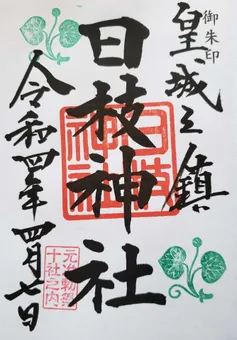 御朱印
皇城之鎮
日枝神社
日枝神社
令和四年四月七日
元准勅祭
十社之内